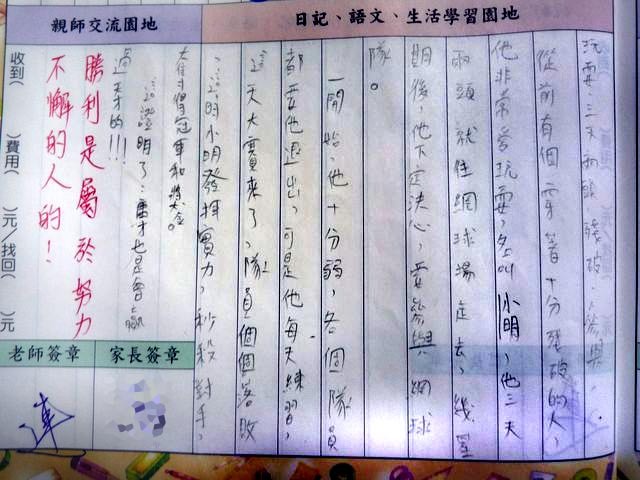 日記、語文、生活學習園地
玩耍、三天兩頭、殘破、參與、
從前有個穿著十分殘破的人，
他非常愛玩耍，名叫小明，他三天
兩頭就往網球場走去，幾星
期後，他下定決心，要參與網球
隊。
一開始，他十分弱，各個隊員
都要他退出，可是他每天練習，
這天大賽來了，隊員個個落敗
，這時小明發揮實力，秒殺對手，
大伙才得冠軍和獎金。
這證明了：庸才也是會贏
過天才的!!!
親師交流園地
勝利是屬於努力
不懈的人的！
收到（ ）費用（ ）元/找回（ ）元
家長簽章
老師簽章
連